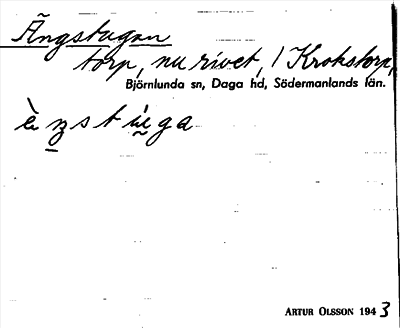 Ängstugan
torp, nu rivet, / Krokstorp,
Björnlunda sn, Daga hd, Södermanlands län.
ARTUR OLSSON 1943